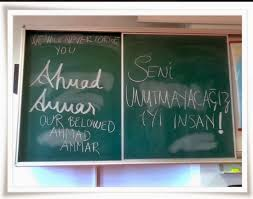 WE WILL NEVER FORGET
YOU
Ahmad
Ammar
OUR BELOWED
AHMAD
AMMAR
SENİ
UNUTMAYACAĞIZ
İYİ İNSAN!